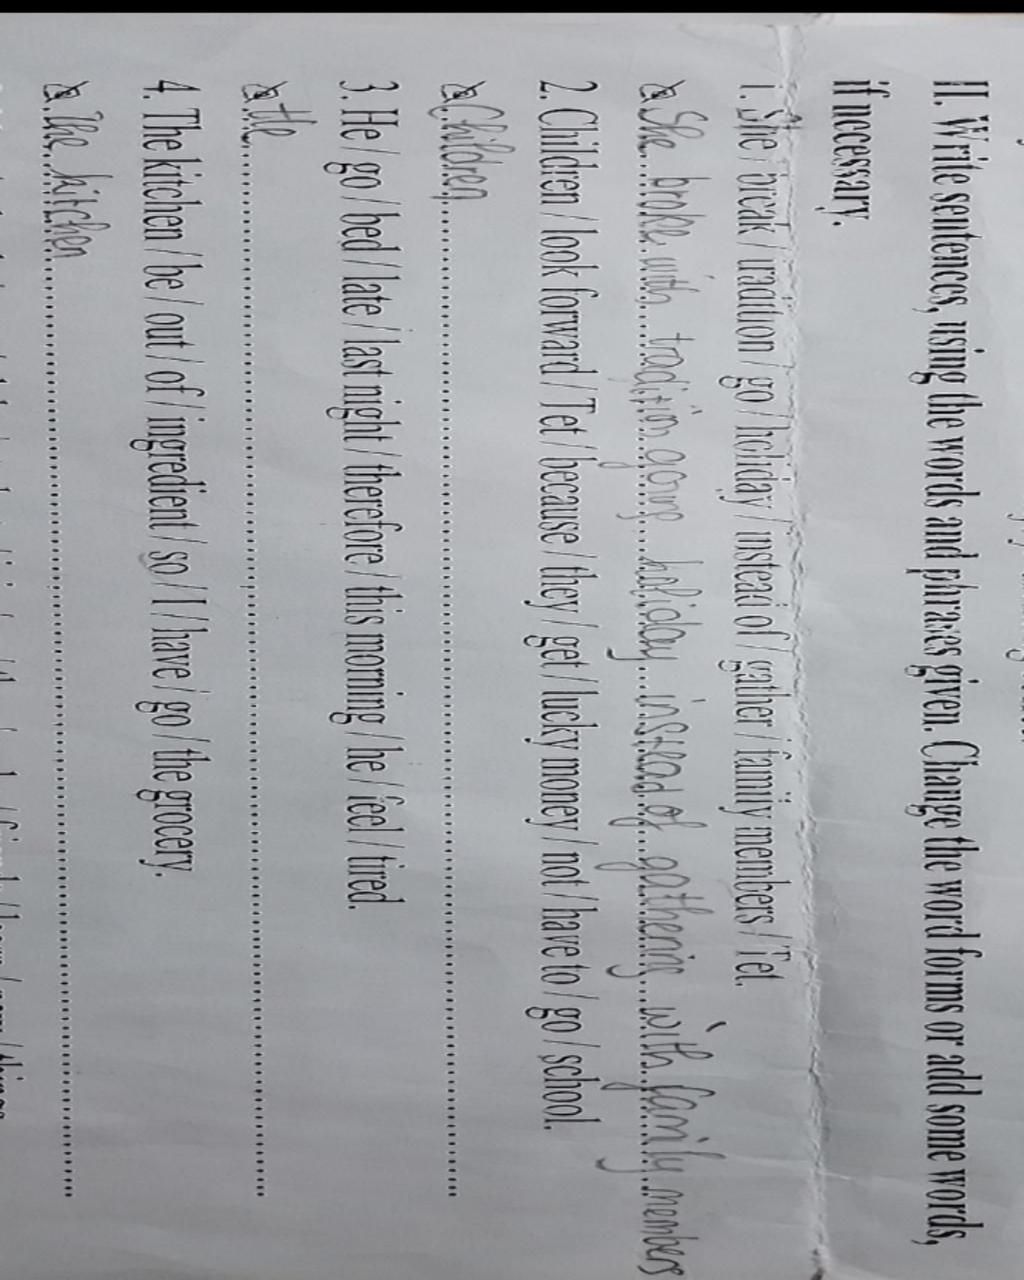 II. Write sentences, using the words and phrases given. Change the word forms or add some words,
if necessary.
1. She / break / tradition / go / holiday / instead of / gather / family members / Tet.
She broke with tradition going holiday instead of gathering with family members
2. Children / look forward / Tet / because / they / get / lucky money / not / have to / go / school.
Children
3. He / go / bed / late / last night / therefore / this morning / he / feel / tired.
He
4. The kitchen / be / out / of / ingredient / so / I / have / go / the grocery.
The kitchen